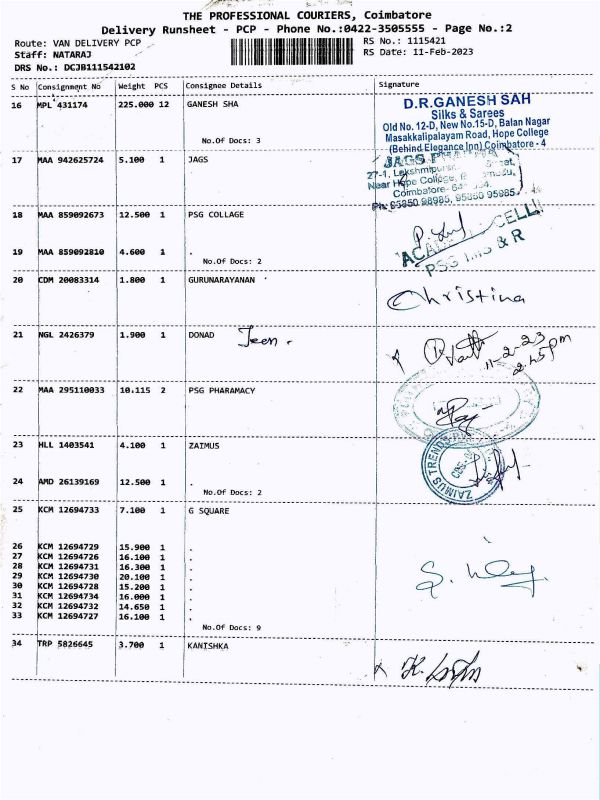 THE PROFESSIONAL COURIERS, Coimbatore
Delivery Runsheet - PCP - Phone No.:0422-3505555 - Page No.:2
Route: VAN DELIVERY PCP
Staff: NATARAJ
DRS No.: DCJB111542102
RS No.: 1115421
RS Date: 11-Feb-2023
S No Consignment No Weight PCS Consignee Details Signature
16 MPL 431174 225.000 12 GANESH SHA
No.Of Docs: 3
D.R.GANESH SAH
Silks & Sarees
Old No. 12-D, New No.15-D, Balan Nagar
Masakkalipalayam Road, Hope College
(Behind Elegance Inn) Coimbatore - 4
17 MAA 942625724 5.100 1 JAGS
JAGS
27-1, Lakshmipuram
Near Hope College,
Coimbatore-
Ph: 95850 98985, 95080 95985
18 MAA 859092673 12.500 1 PSG COLLAGE
19 MAA 859092810 4.600 1 .
No.Of Docs: 2
CELL
PSG IMS & R
20 CDM 20083314 1.800 1 GURUNARAYANAN
Christina
21 NGL 2426379 1.900 1 DONAD Jeen.
11-2-23
2.45pm
22 MAA 295110033 10.115 2 PSG PHARAMACY
23 HLL 1403541 4.100 1 ZAIMUS
ZAIMUS TRENDS
24 AMD 26139169 12.500 1 .
No.Of Docs: 2
25 KCM 12694733 7.100 1 G SQUARE
26 KCM 12694729 15.900 1 .
27 KCM 12694726 16.100 1 .
28 KCM 12694731 16.300 1 .
29 KCM 12694730 20.100 1 .
30 KCM 12694728 15.200 1 .
31 KCM 12694734 16.000 1 .
32 KCM 12694732 14.650 1 .
33 KCM 12694727 16.100 1 .
No.Of Docs: 9
34 TRP 5826645 3.700 1 KANISHKA